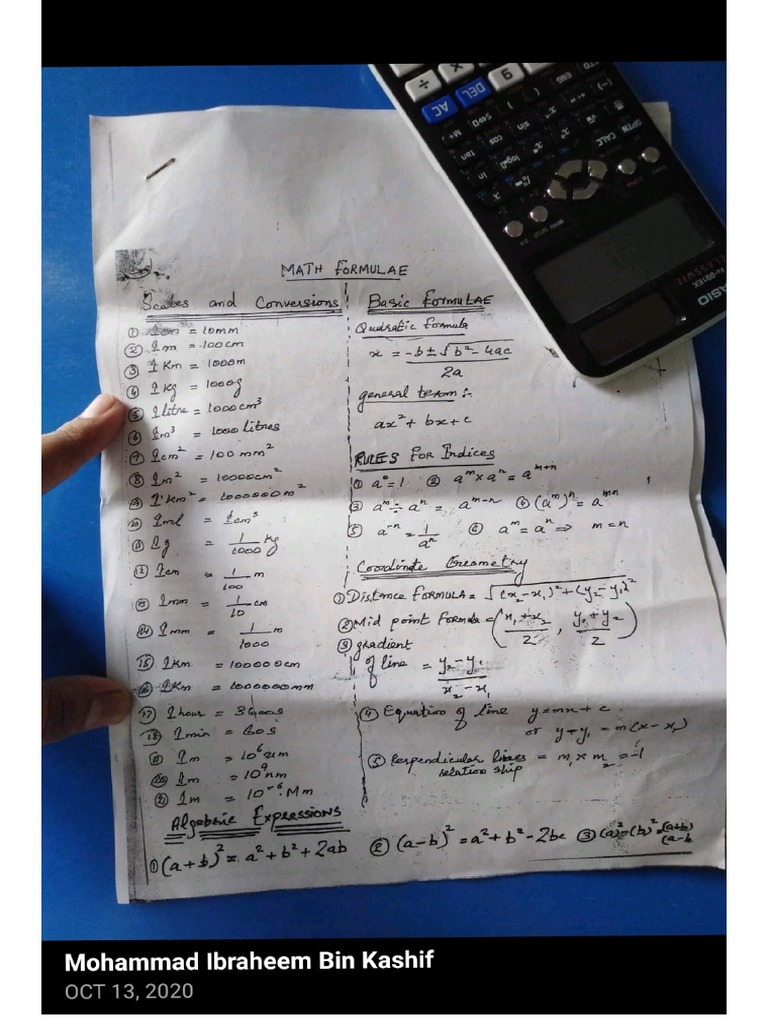 MATH FORMULAE
Scales and Conversions
① 1cm = 10mm
② 1m = 100cm
③ 1Km = 1000m
④ 1kg = 1000g
⑤ 1litre = 1000cm³
⑥ 1m³ = 1000 litres
⑦ 1cm² = 100 mm²
⑧ 1m² = 10000cm²
⑨ 1km² = 1000000m²
⑩ 1ml = 1cm³
⑪ 1g = 1/1000 Kg
⑫ 1cm = 1/100 m
⑬ 1mm = 1/10 cm
⑭ 1mm = 1/1000 m
⑮ 1Km = 100000cm
⑯ 1Km = 1000000mm
⑰ 1hour = 3600s
⑱ 1min = 60s
1m = 10⁶um
⑳ 1m = 10⁹nm
㉑ 1m = 10⁻⁶ Mm
Basic FORMULAE
Qudratic formula
x = -b ± √b² - 4ac / 2a
general term :-
ax² + bx + c
RULES For Indices
① a⁰ = 1 ② aᵐ x aⁿ = aᵐ⁺ⁿ
③ aᵐ ÷ aⁿ = aᵐ⁻ⁿ ④ (aᵐ)ⁿ = aᵐⁿ
⑤ a⁻ⁿ = 1/aⁿ ⑥ aᵐ = aⁿ ⇒ m = n
Coordinate Geometry
① Distance FORMULA = √(x₂-x₁)² + (y₂-y₁)²
② Mid point Formula = (x₁+x₂/2 , y₁+y₂/2)
③ gradient
of line = y₂-y₁ / x₂-x₁
④ Equation of line y = mx + c
or y-y₁ = m(x-x₁)
⑤ Perpendicular lines = m₁ x m₂ = -1
relation ship
Algebric Expressions
① (a+b)² = a² + b² + 2ab
② (a-b)² = a² + b² - 2bc
③ (a)²-(b)² = (a+b)
(a-b
CASIO
fx-991EX
CLASSWIZ
AC
DEL
OPTN
CALC
sin
cos
tan
ln
S⇔D
M+
ENG
9
÷
×
Mohammad Ibraheem Bin Kashif
OCT 13, 2020